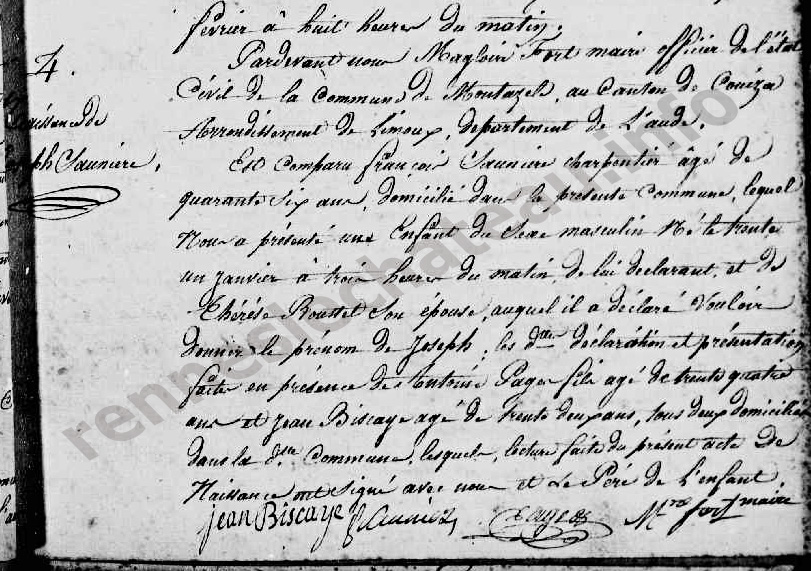 février à huit heures du matin.
4.
Pardevant nous Magloire Fort maire officier de l'état
Civil de la Commune de Montazels, au Canton de Couiza
Naissance de
Arrondissement de Limoux, département de L'aude.
Joseph Saunière.
Est comparu françois Saunière charpentier âgé de
quarante Six ans, domicilié dans la présente Commune, lequel
Nous a présenté un Enfant du Sexe masculin Né le trente
un janvier à trois heures du matin, de lui déclarant, et de
Thérèse Boussel Son épouse, auquel il a déclaré Vouloir
donner le prénom de Joseph, les dttes déclaration et présentation
faite en présence de Antoine Pages fils agé de trente quatre
ans et Jean Biscaye agé de trente deux ans, tous deux domiciliés
dans la dtte Commune, lesquels, lecture faite du présent acte de
Naissance ont Signé avec nous et Le Père de L'enfant.
jean Biscaye Saunière Pages Mre fort maire
renneslechateau.info